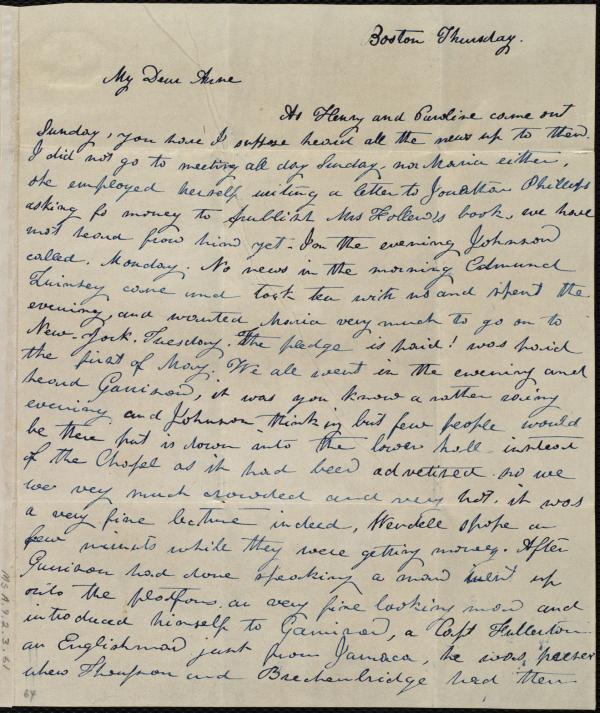 Boston Thursday.
My Dear Anne
As Henry and Caroline came out
Sunday, you have I suppose heard all the news up to then.
I did not go to meeting all day Sunday, nor Maria either,
she employed herself writing a letter to Jonathan Phillips
asking fo money to publish Mrs Follen's book, we have
not heard from him yet - In the evening Johnson
called. Monday. No news in the morning Edmund
Quinsey came and took tea with us and spent the
evening, and wanted Maria very much to go on to
New-York. Tuesday. The pledge is paid! was paid
the first of May. We all went in the evening and
heard Garrison, it was you know a rather rainy
evening and Johnson thinking but few people would
be there put is down into the lower hall instead
of the Chapel as it had been advetised so we
we very much crowded and very hot. it was
a very fine lecture indeed, Wendell spoke a
few minuts while they were getting money. After
Garrison had done speaking a man went up
onto the platform, a very fine looking man and
introduced himself to Garrison, a Capt Fullerton
an Englishman just from Jamaca, he was preser
when Thompson and Breckenbridge had their
Ms.A.9.2.3.61
64